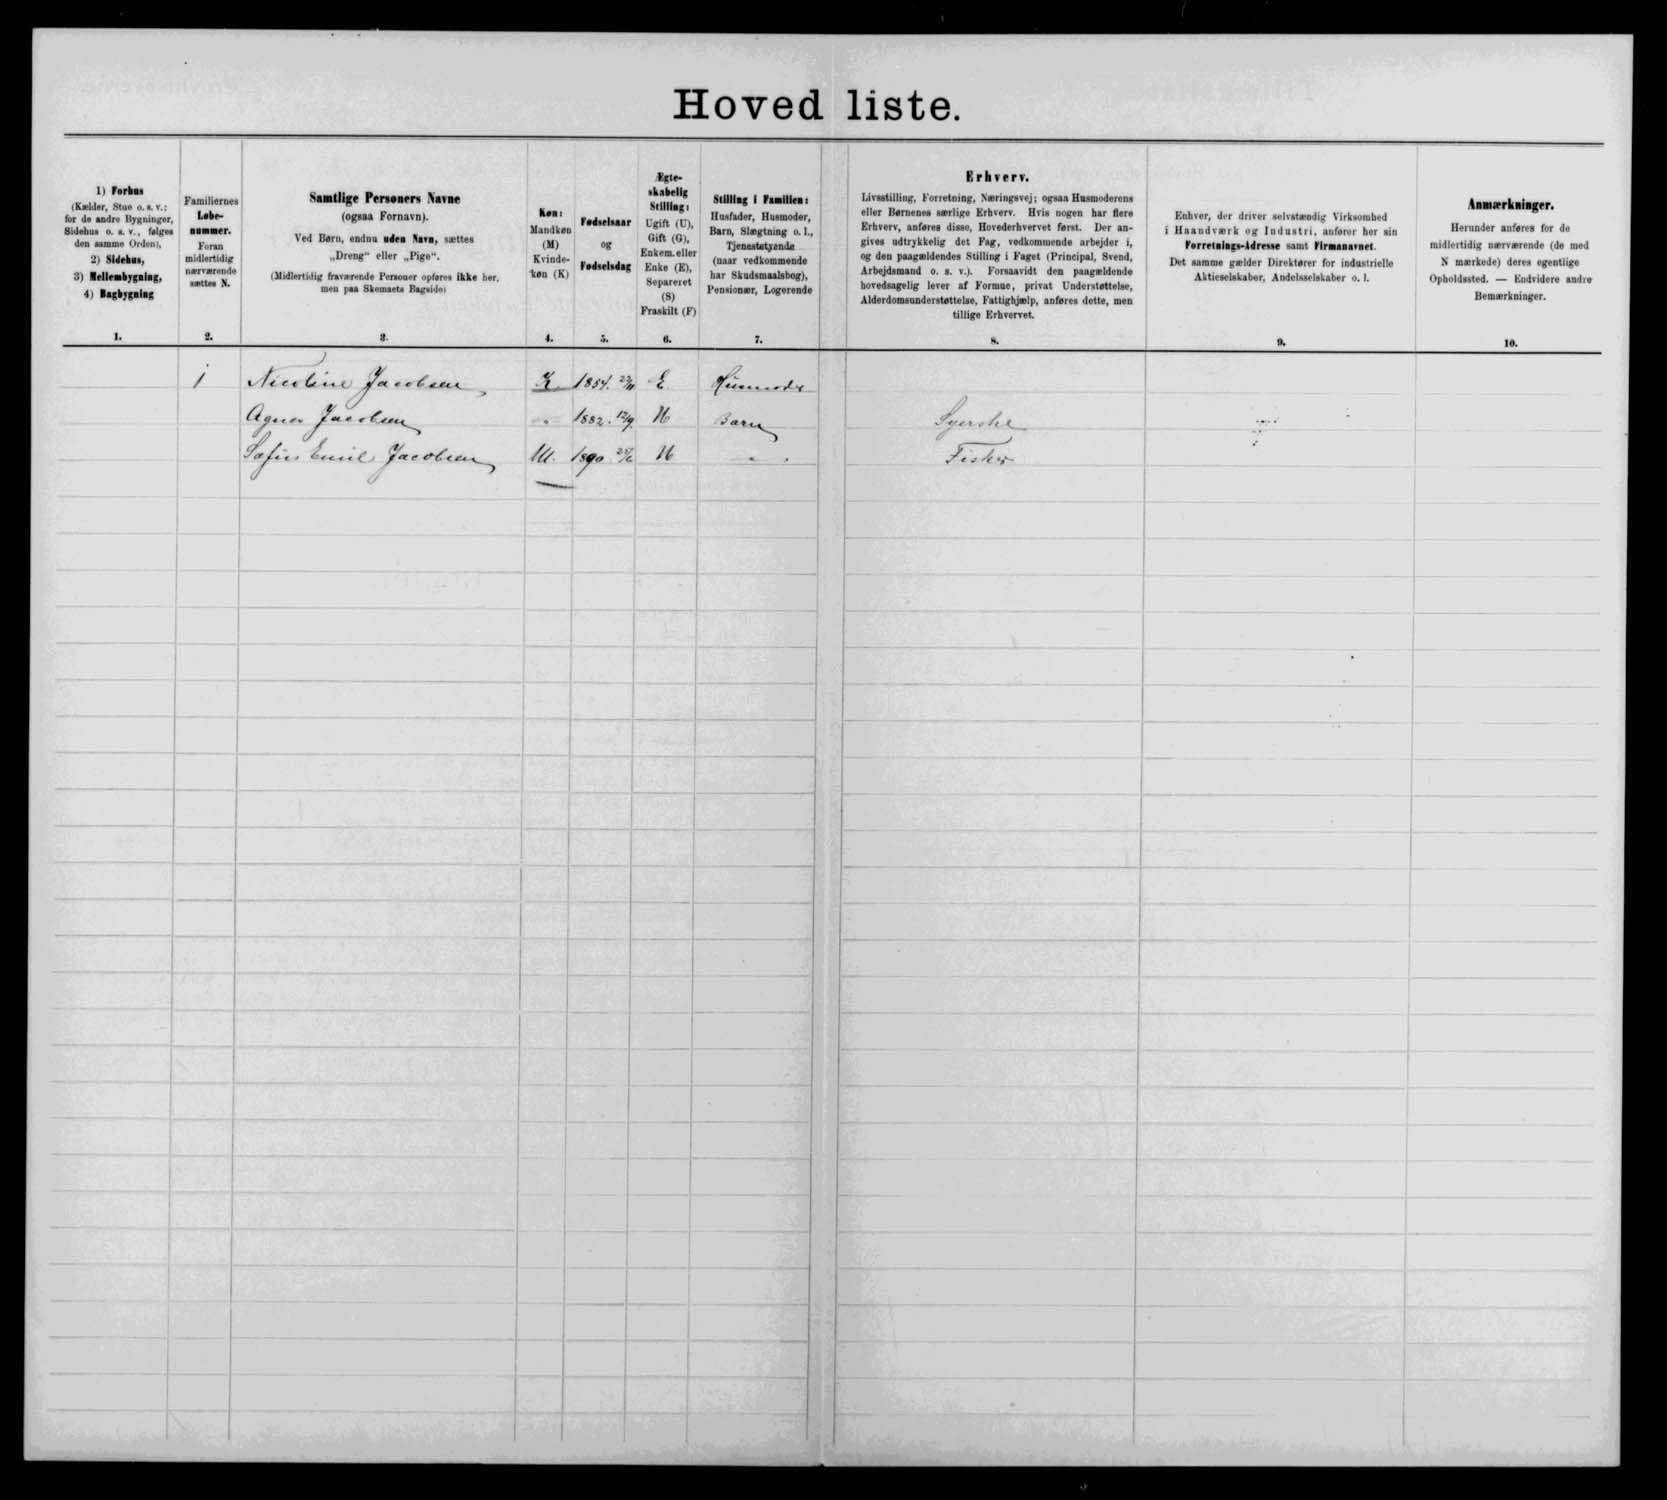 Hoved liste.
1) Forhus
(Kælder, Stue o. s. v.;
for de andre Bygninger,
Sidehus o. s. v., følges
den samme Orden),
2) Sidehus,
3) Mellembygning,
4) Bagbygning
1.
Familiernes
Løbe-
nummer.
Foran
midlertidig
nærværende
sættes N.
2.
Samtlige Personers Navne
(ogsaa Fornavn).
Ved Børn, endnu uden Navn, sættes
„Dreng“ eller „Pige“.
(Midlertidig fraværende Personer opføres ikke her,
men paa Skemaets Bagside)
3.
Køn:
Mandkøn
(M)
Kvinde-
køn (K)
4.
Fødselsaar
og
Fødselsdag
5.
Ægte-
skabelig
Stilling:
Ugift (U),
Gift (G),
Enkem. eller
Enke (E),
Separeret
(S)
Fraskilt (F)
6.
Stilling i Familien:
Husfader, Husmoder,
Barn, Slægtning o. l.,
Tjenestetyende
(naar vedkommende
har Skudsmaalsbog),
Pensionær, Logerende
7.
Erhverv.
Livsstilling, Forretning, Næringsvej; ogsaa Husmoderens
eller Børnenes særlige Erhverv. Hvis nogen har flere
Erhverv, anføres disse, Hovederhvervet først. Der an-
gives udtrykkelig det Fag, vedkommende arbejder i,
og den paagældendes Stilling i Faget (Principal, Svend,
Arbejdsmand o. s. v.). Forsaavidt den paagældende
hovedsagelig lever af Formue, privat Understøttelse,
Alderdomsunderstøttelse, Fattighjælp, anføres dette, men
tillige Erhvervet.
8.
Enhver, der driver selvstændig Virksomhed
i Haandværk og Industri, anfører her sin
Forretnings-Adresse samt Firmanavnet.
Det samme gælder Direktører for industrielle
Aktieselskaber, Andelsselskaber o. l.
9.
Anmærkninger.
Herunder anføres for de
midlertidig nærværende (de med
N mærkede) deres egentlige
Opholdssted. — Endvidere andre
Bemærkninger.
10.
1 Nicoline Jacobsen K 1854. 22/11 E Husmoder
Agnes Jacobsen " 1882. 12/9. U Barn Syerske
Emil Jacobsen M. 1890 U " Fisker